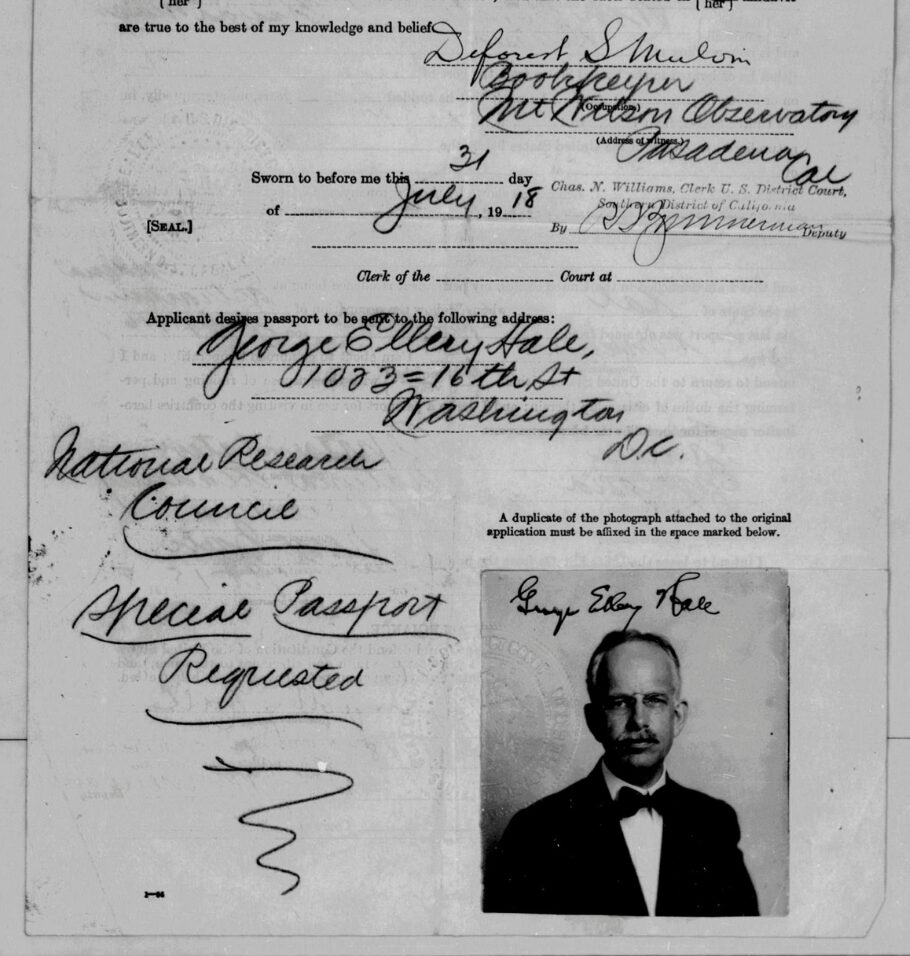 [her]
are true to the best of my knowledge and belief.
Deforest S Mulvin
Bookkeeper
(Occupation.)
Mt Wilson Observatory
(Address of witness.)
Pasadena
Cal
Sworn to before me this 31 day
of July, 1918
Chas. N. Williams, Clerk U. S. District Court,
Southern District of California
[SEAL.]
By Zimmerman Deputy
Clerk of the Court at
Applicant desires passport to be sent to the following address:
George Ellery Hale,
1023=16th St
Washington
D.C.
National Research
Council
Special Passport
Requested
A duplicate of the photograph attached to the original
application must be affixed in the space marked below.
George Ellery Hale